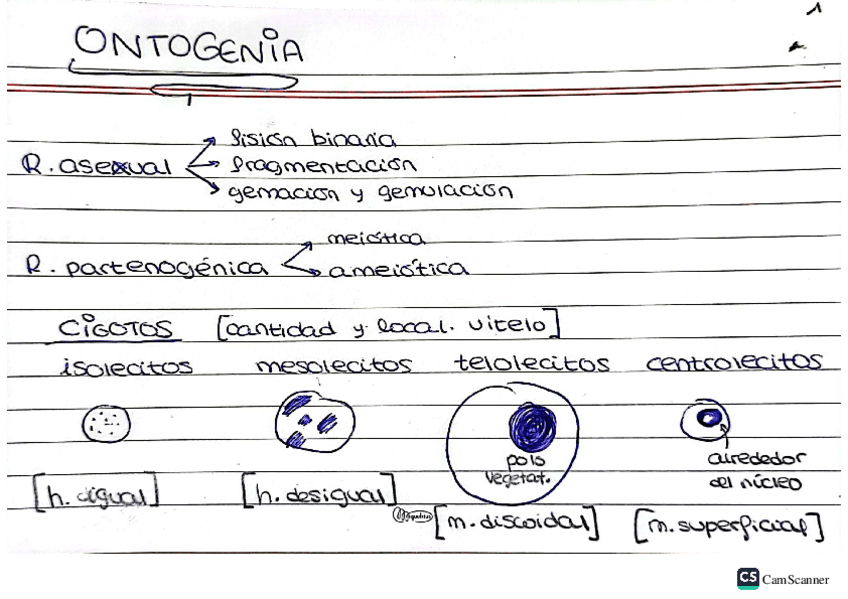 1
ONTOGENIA
R. asexual
fisión binaria
fragmentación
gemación y gemulación
R. partenogénica
meiótica
ameiótica
CIGOTOS [cantidad y local. vitelo]
isolecitos mesolecitos telolecitos centrolecitos
polo
vegetat.
alrededor
del núcleo
[h. igual] [h. desigual]
[m. discoidal] [m. superficial]
CS CamScanner